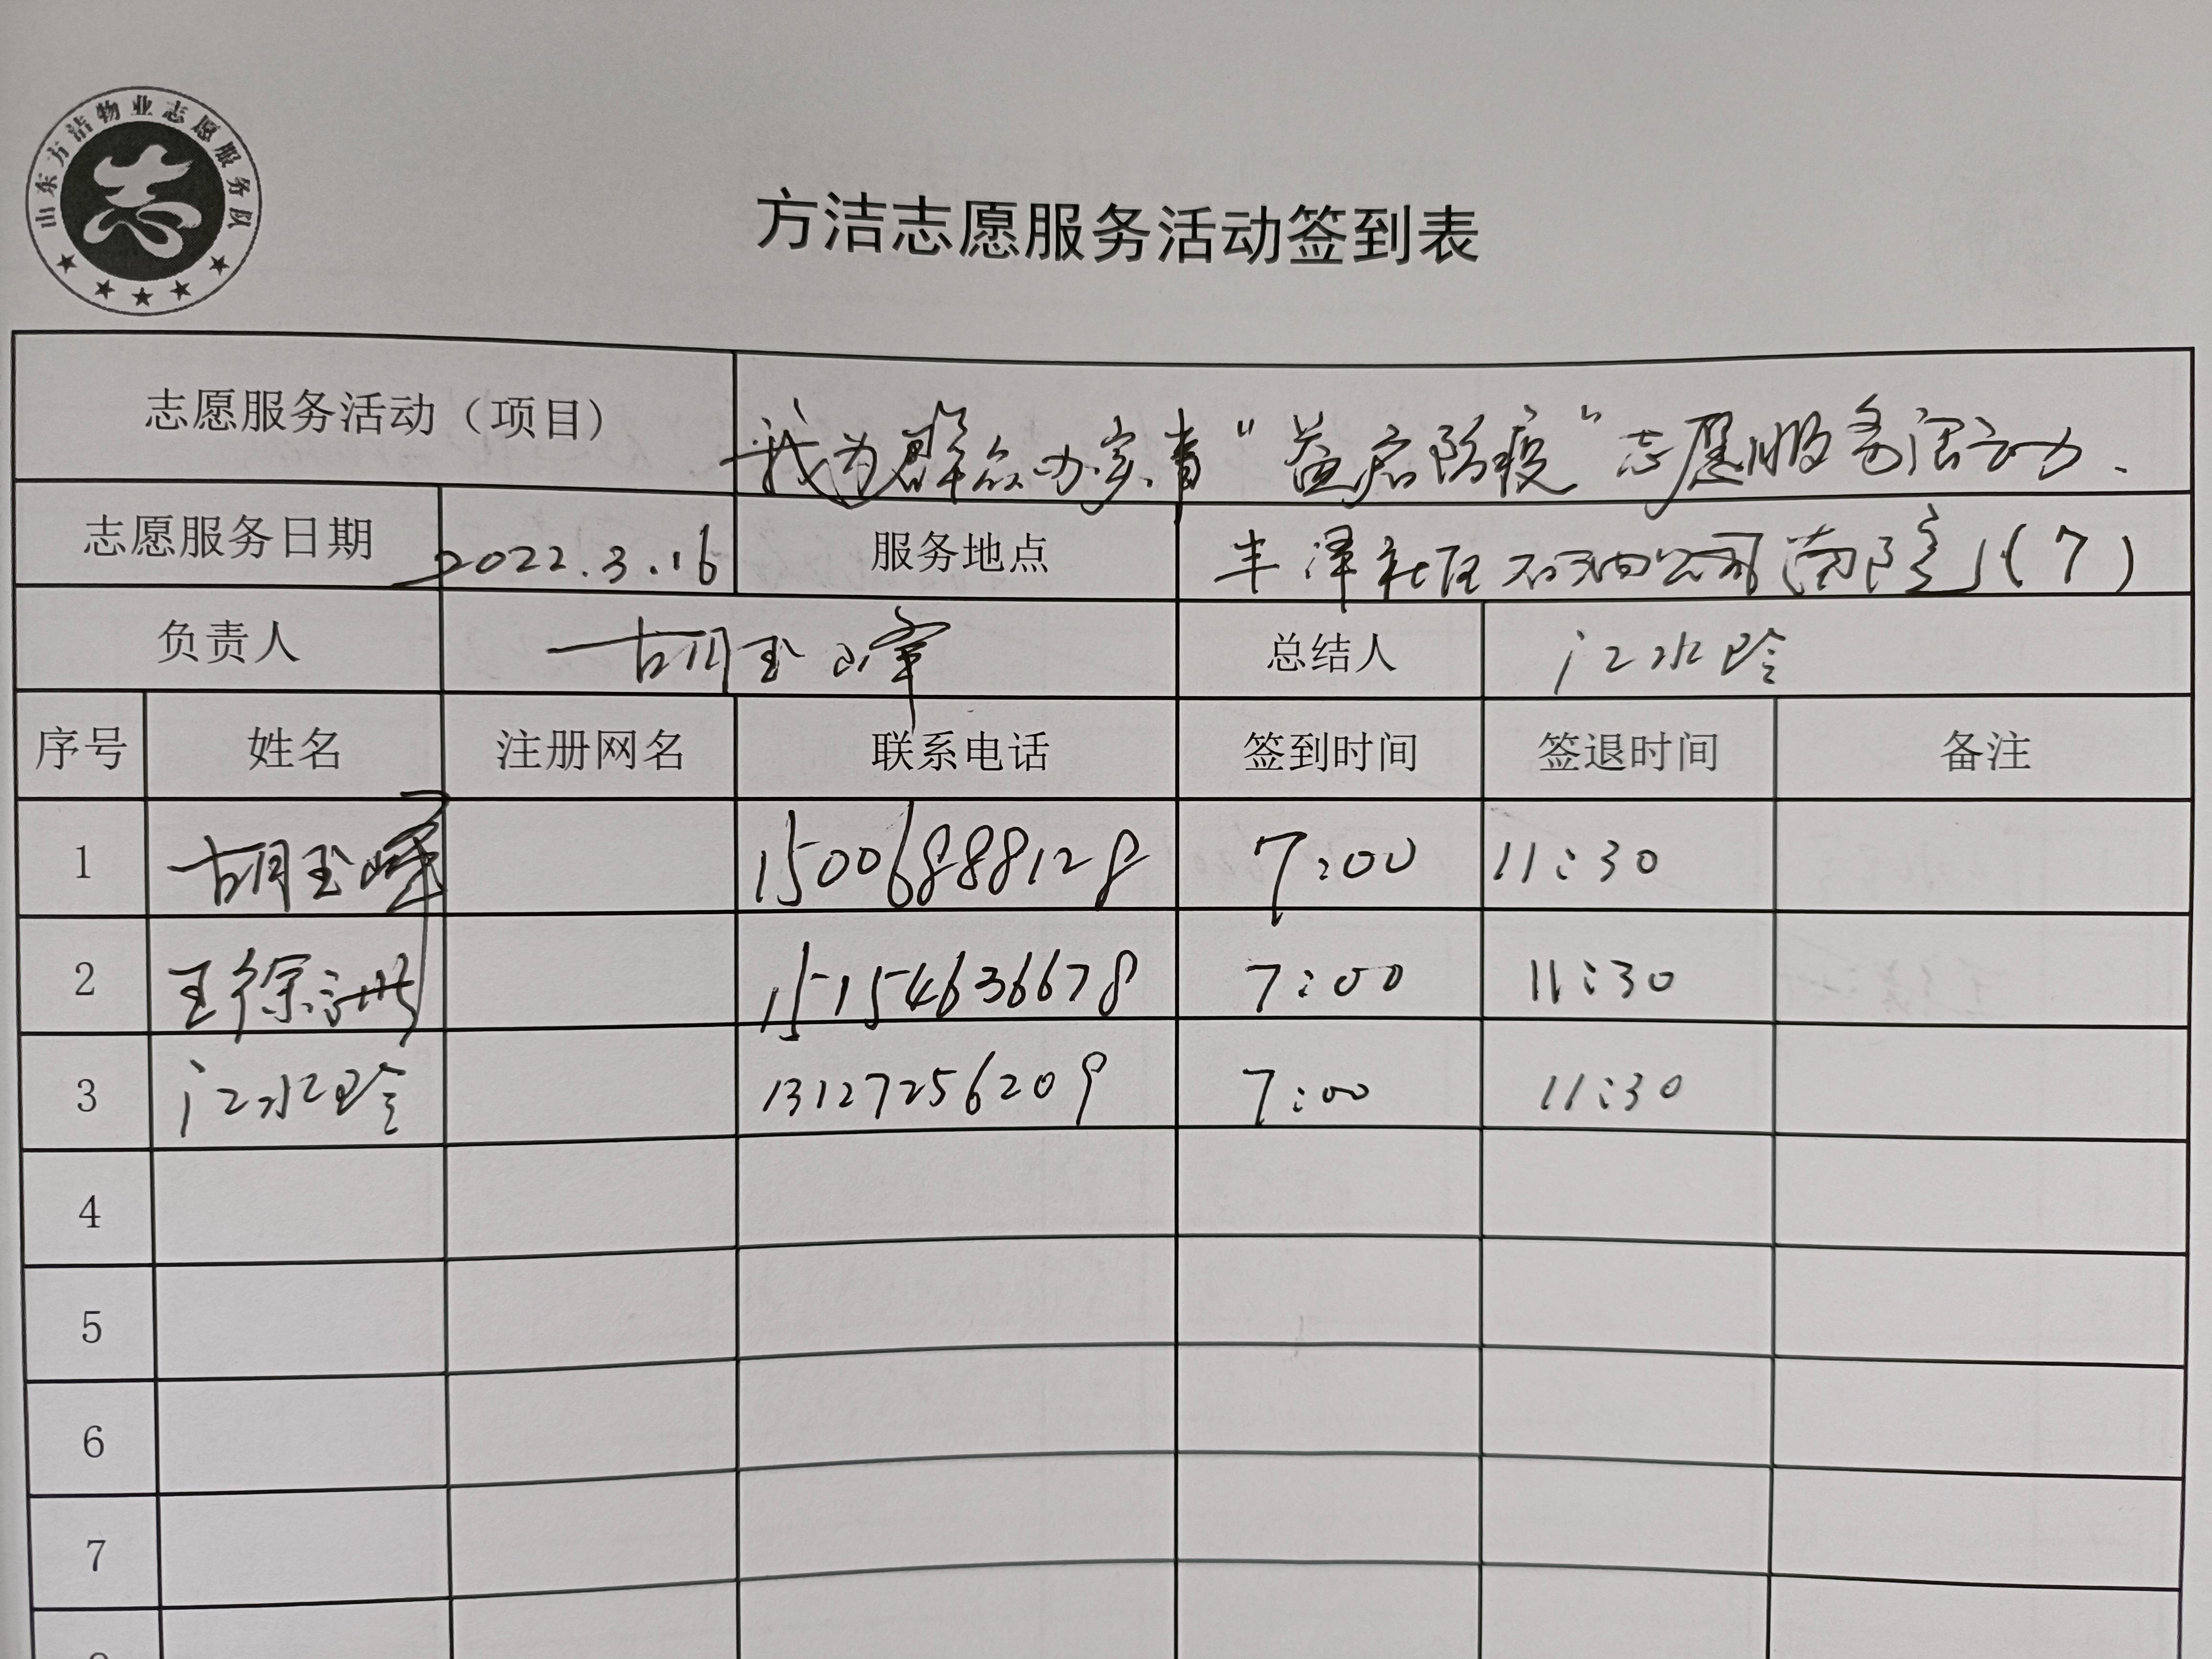 山东方洁物业志愿服务队
方洁志愿服务活动签到表
志愿服务活动（项目） 我为群众办实事“益启防疫”志愿服务活动.
志愿服务日期 2022.3.16 服务地点 丰泽社区石油公司(南院)(7)
负责人 胡玉峰 总结人 江水玲
序号 姓名 注册网名 联系电话 签到时间 签退时间 备注
1 胡玉峰 15006888128 7:00 11:30
2 王徐 15154636678 7:00 11:30
3 江水玲 13127256209 7:00 11:30
4
5
6
7